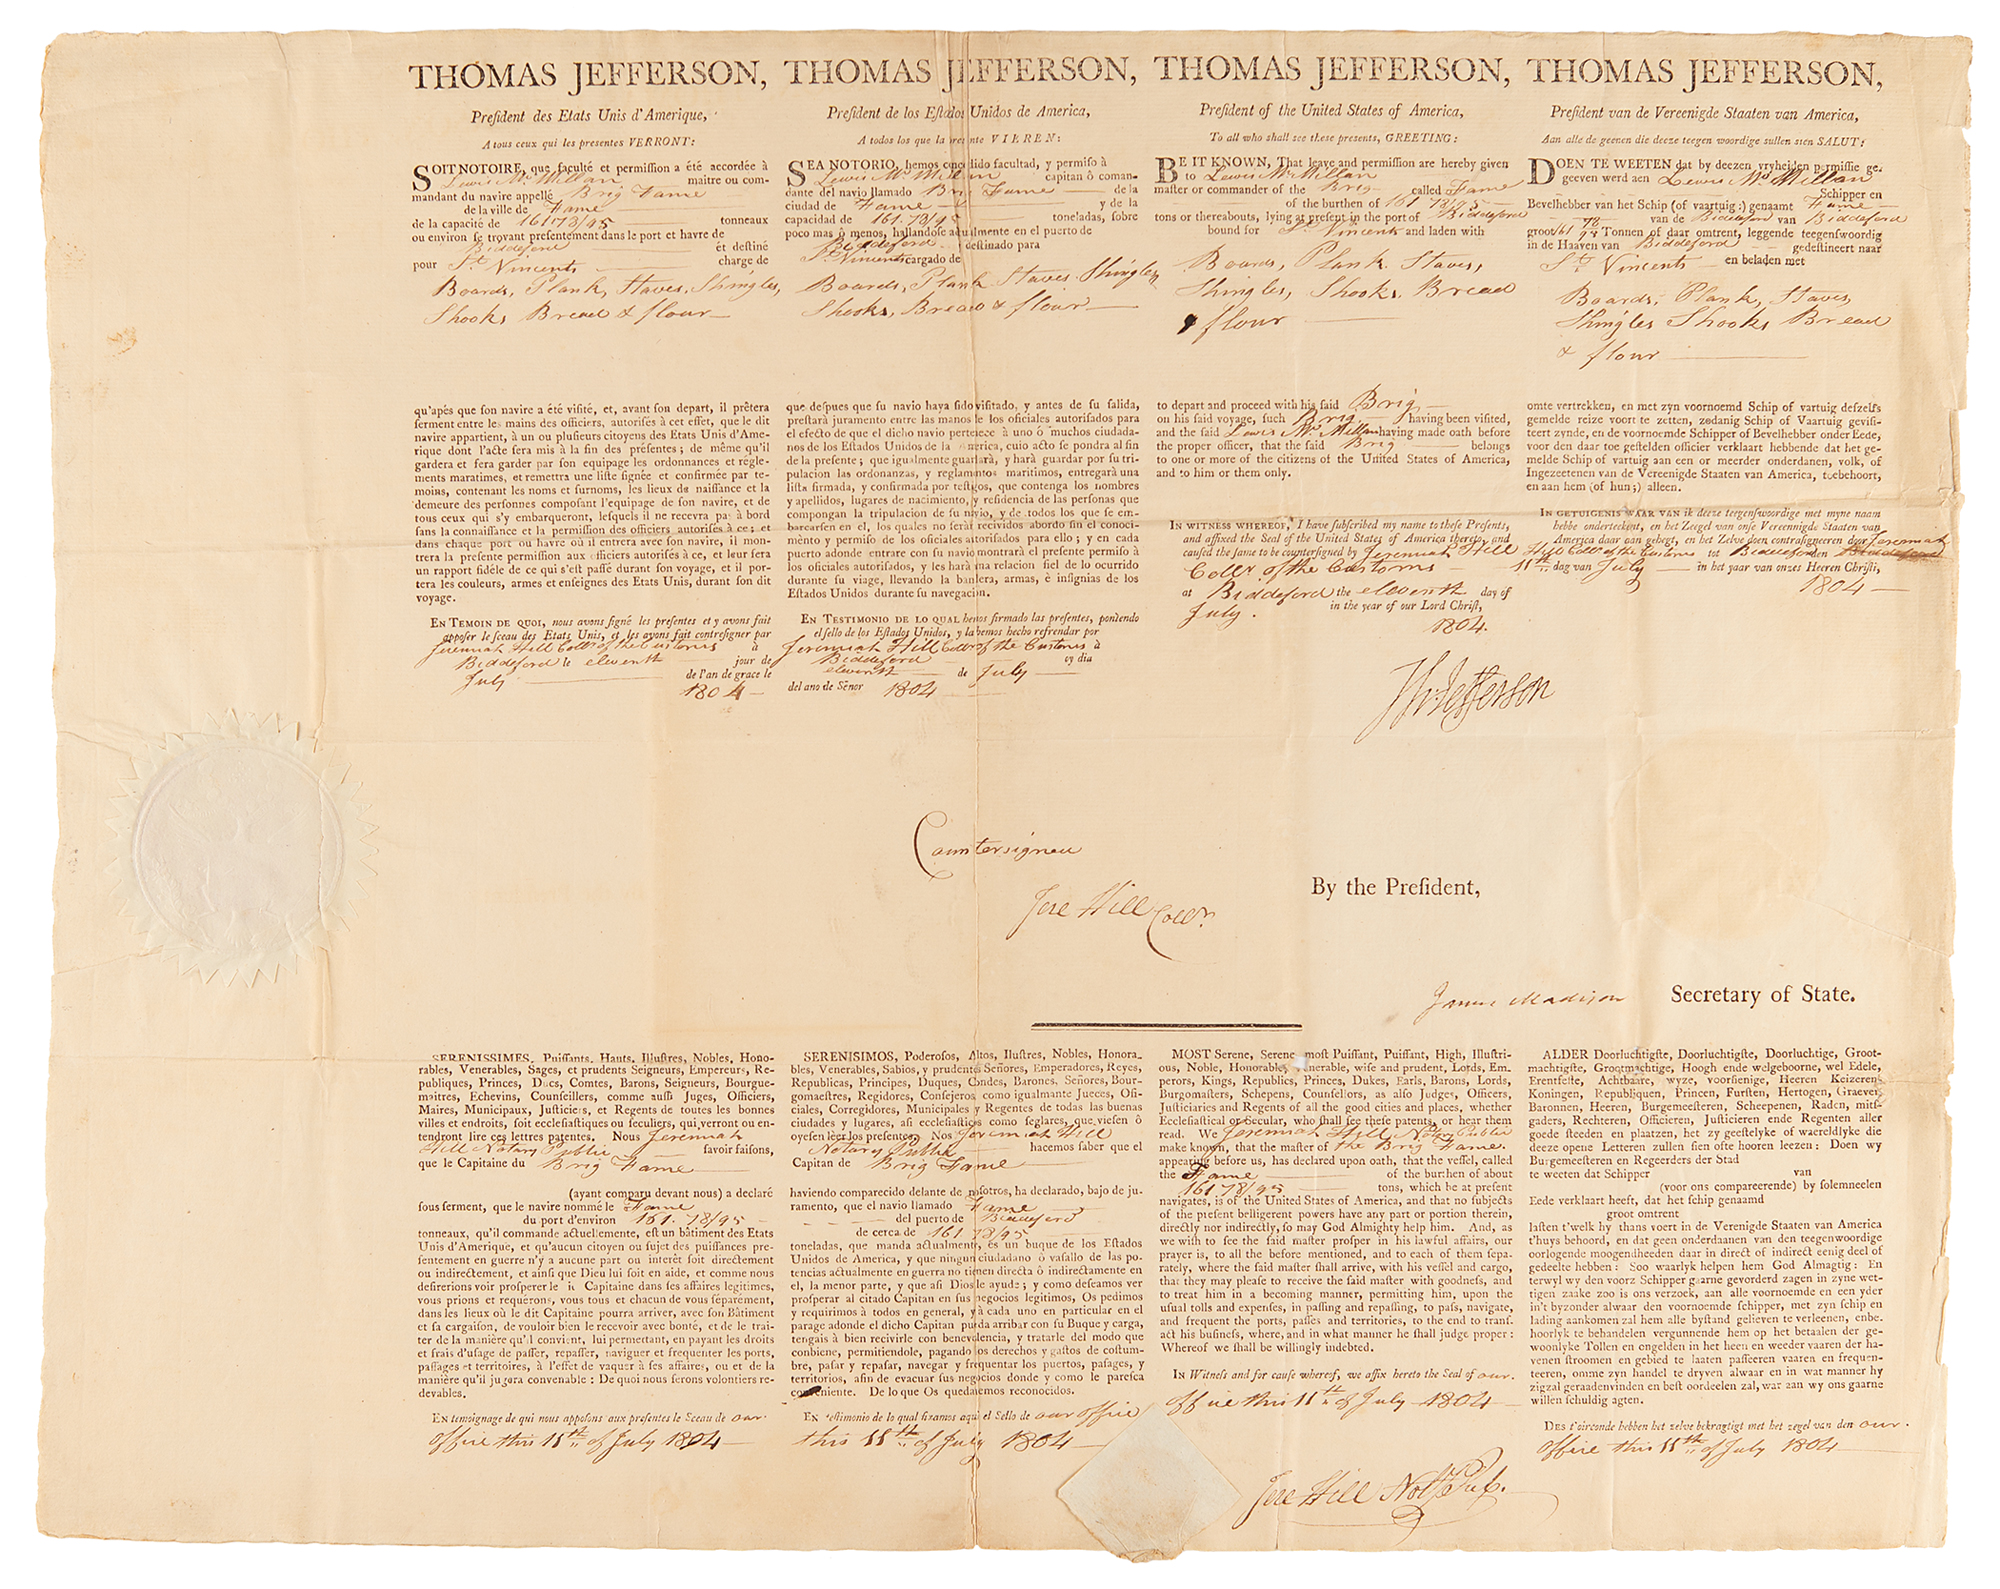 THOMAS JEFFERSON,
President des Etats Unis d'Amerique,
A tous ceux qui les presentes VERRONT:
SOIT NOTOIRE, que faculté et permission a été accordée à
Lewis Mc Millan maitre ou com-
mandant du navire appellé Brig Fame
de la ville de Fame
de la capacité de 161 78/95 tonneaux
ou environ se trouvant presentement dans le port et havre de
Biddeford et destiné
pour St. Vincents charge de
Boards, Plank, Staves, Shingles,
Shooks Bread & flour
qu'apés que son navire a été visité, et, avant son depart, il prêtera
serment entre les mains des officiers, autorisés à cet effet, que le dit
navire appartient, à un ou plusieurs citoyens des Etats Unis d'Ame-
rique dont l'acte sera mis à la fin des présentes; de même qu'il
gardera et fera garder par son equipage les ordonnances et régle-
ments maratimes, et remettra une liste signée et confirmée par te-
moins, contenant les noms et surnoms, les lieux de naissance et la
demeure des personnes composant l'equipage de son navire, et de
tous ceux qui s'y embarqueront, lesquels il ne recevra pas à bord
sans la connaissance et la permission des officiers autorisés à ce; et
dans chaque port ou havre où il entrera avec son navire, il mon-
trera la presente permission aux officiers autorisés à ce, et leur fera
un rapport fidéle de ce qui s'est passé durant son voyage, et il por-
tera les couleurs, armes et enseignes des Etats Unis, durant son dit
voyage.
EN TEMOIN DE QUOI, nous avons signé les presentes et y avons fait
apposer le sceau des Etats Unis, et les avons fait contresigner par
Jeremiah Hill Collr of the Customs à
Biddeford le eleventh jour de
July de l'an de grace le
1804
THOMAS JEFFERSON,
President de los Estados Unidos de America,
A todos los que la presente VIEREN:
SEA NOTORIO, hemos concedido facultad, y permiso à
Lewis Mc Millan capitan ô coman-
dante del navio llamado Brig Fame de la
ciudad de Fame y de la
capacidad de 161. 78/95 toneladas, sobre
poco mas ô menos, hallandose actualmente en el puerto de
Biddeford destinado para
St. Vincents cargado de
Boards, Plank Staves Shingles,
Shooks, Bread & flour
que despues que su navio haya sido visitado, y antes de su salida,
prestará juramento entre las manos de los oficiales autorisados para
el efecto de que el dicho navio pertenece à uno ó muchos ciudada-
nos de los Estados Unidos de la America, cuio acto se pondra al fin
de la presente; que igualmente guardará, y hará guardar por su tri-
pulacion las ordonanzas, y reglamentos maritimos, entregará una
lista firmada, y confirmada por testigos, que contenga los nombres
y apellidos, lugares de nacimiento, y residencia de las personas que
compongan la tripulacion de su navio, y de todos los que se em-
barcarsen en el, los quales no serán recividos abordo sin el conoci-
mènto y permiso de los oficiales autorisados para ello; y en cada
puerto adonde entrare con su navio montrará el presente permiso à
los oficiales autorisados, y les hará una relacion fiel de lo ocurrido
durante su viage, llevando la bandera, armas, è insignias de los
Estados Unidos durante su navegacion.
EN TESTIMONIO DE LO QUAL hemos firmado las presentes, poniendo
el sello de los Estados Unidos, y la hemos hecho refrendar por
Jeremiah Hill Collr of the Customs à
Biddeford ey dia
eleventh de July
del ano de Señor 1804
THOMAS JEFFERSON,
President of the United States of America,
To all who shall see these presents, GREETING:
BE IT KNOWN, That leave and permission are hereby given
to Lewis Mc Millan
master or commander of the Brig called Fame
of the burthen of 161 78/95
tons or thereabouts, lying at present in the port of Biddeford
bound for St. Vincents and laden with
Boards, Plank Staves,
Shingles, Shooks, Bread
& flour
to depart and proceed with his said Brig
on his said voyage, such Brig having been visited,
and the said Lewis Mc Millan having made oath before
the proper officer, that the said Brig belongs
to one or more of the citizens of the United States of America,
and to him or them only.
IN WITNESS WHEREOF, I have subscribed my name to these Presents,
and affixed the Seal of the United States of America thereto, and
caused the same to be countersigned by Jeremiah Hill
Collr. of the Customs
at Biddeford the eleventh day of
July. in the year of our Lord Christ,
1804.
Th: Jefferson
THOMAS JEFFERSON,
President van de Vereenigde Staaten van America,
Aan alle de geenen die deeze teegen woordige sullen sien SALUT:
DOEN TE WEETEN dat by deezen vryheiden permissie ge-
geeven werd aen Lewis Mc Millan
Schipper en
Bevelhebber van het Schip (of vaartuig:) genaamt Fame
van de Biddeford van Biddeford
groot 161 78/95 Tonnen of daar omtrent, leggende teegenswoordig
in de Haaven van Biddeford gedestineert naar
St. Vincents en beladen met
Boards, Plank, Staves,
Shingles Shooks Bread
& flour
omte vertrekken, en met zyn voornoemd Schip of vartuig defzelfs
gemelde reize voort te zetten, zodanig Schip of Vaartuig gevisi-
teert zynde, en de voornoemde Schipper of Bevelhebber onder Eede,
voor den daar toe gestelden officier verklaart hebbende dat het ge-
melde Schip of vartuig aan een or meerder onderdanen, volk, of
Ingezeetenen van de Vereenigde Staaten van America, toebehoort,
en aan hem (of hun;) alleen.
IN GETUIGENIS WAAR VAN ik deeze teegenswoordige met myne naam
hebbe onderteekent, en het Zeegel van onse Vereenigde Staaten van
America daar aan gehegt, en het Zelve doen contrasigneeren door Jeremiah
Hill Collr of the Customs tot Biddeford den
11th dag van July in het yaar van onzes Heeren Christi,
1804
Countersigned
Jere Hill Collr.
By the President,
James Madison Secretary of State.
SERENISSIMES, Puissants, Hauts, Illustres, Nobles, Hono-
rables, Venerables, Sages, et prudents Seigneurs, Empereurs, Re-
publiques, Princes, Ducs, Comtes, Barons, Seigneurs, Bourgue-
maitres, Echevins, Counseillers, comme aussi Juges, Officiers,
Maires, Municipaux, Justiciers, et Regents de toutes les bonnes
villes et endroits, soit ecclesiastiques ou seculiers, qui verront ou en-
tendront lire ces lettres patentes. Nous Jeremiah
Hill Notary Public savoir faisons,
que le Capitaine du Brig Fame
(ayant comparu devant nous) a declaré
sous serment, que le navire nommé le Fame
du port d'environ 161. 78/95
tonneaux, qu'il commande actuellement, est un bâtiment des Etats
Unis d'Amerique, et qu'aucun citoyen ou sujet des puissances pre-
sentement en guerre n'y a aucune part ou interêt soit directement
ou indirectement, et ainsi que Dieu lui soit en aide, et comme nous
desirerions voir prosperer le Capitaine dans ses affaires legitimes,
vous prions et requérons, vous tous et chacun de vous séparément,
dans les lieux où le dit Capitaine pourra arriver, avec son Bâtiment
et sa cargaison, de vouloir bien le recevoir avec bonté, et de le trai-
ter de la manière qu'il convient, lui permettant, en payant les droits
et frais d'usage de passer, repasser, naviguer et frequenter les ports,
passages et territoires, à l'effet de vaquer à ses affaires, ou et de la
manière qu'il jugera convenable: De quoi nous serons volontiers re-
devables.
EN temoignage de qui nous apposons aux presentes le Sceau de our
office this 11th of July 1804
SERENISIMOS, Poderosos, Altos, Ilustres, Nobles, Honora-
bles, Venerables, Sabios, y prudents Señores, Emperadores, Reyes,
Republicas, Principes, Duques, Condes, Barones, Señores, Bour-
gomaestres, Regidores, Consejeros, como igualmante Jueces, Ofi-
ciales, Corregidores, Municipales y Regentes de todas las buenas
ciudades y lugares, asi ecclesiasticos como seglares, que viesen ô
oyesen leer los presentes. Nos Jeremiah Hill
Notary Public hacemos saber que el
Capitan de Brig Fame
haviendo comparecido delante de nosotros, ha declarado, bajo de ju-
ramento, que el navio llamado Fame
del puerto de Biddeford
de cerca de 161 78/95
toneladas, que manda actualmente, es un buque de los Estados
Unidos de America, y que ningun ciudadano ô vasallo de las po-
tencias actualmente en guerra no tienen directa ô indirectamente en
el, la menor parte, y que asi Dios le ayude; y como deseamos ver
prosperar al citado Capitan en sus negocios legitimos, Os pedimos
y requirimos à todos en general, y à cada uno en particular en el
parage adonde el dicho Capitan pueda arribar con su Buque y carga,
tengais à bien recivirle con benevolencia, y tratarle del modo que
conbiene, permitiendole, pagando los derechos y gastos de costum-
bre, pasar y repasar, navegar y frequentar los puertos, pasages, y
territorios, asin de evacuar sus negocios donde y como le paresca
conveniente. De lo que Os quedaremos reconocidos.
EN testimonio de lo qual sixamos aqui el Sello de our office
this 11th of July 1804
MOST Serene, Serene most Puissant, Puissant, High, Illustri-
ous, Noble, Honorable, Venerable, wise and prudent, Lords, Em-
perors, Kings, Republics, Princes, Dukes, Earls, Barons, Lords,
Burgomasters, Schepens, Counsellors, as also Judges, Officers,
Justiciaries and Regents of all the good cities and places, whether
Ecclesiastical or Secular, who shall see these patents, or hear them
read. We Jeremiah Hill Notary Public
make known, that the master of the Brig Fame
appearing before us, has declared upon oath, that the vessel, called
the Fame of the burthen of about
161. 78/95 tons, which he at present
navigates, is of the United States of America, and that no subjects
of the present belligerent powers have any part or portion therein,
directly nor indirectly, so may God Almighty help him. And, as
we wish to see the said master prosper in his lawful affairs, our
prayer is, to all the before mentioned, and to each of them sepa-
rately, where the said master shall arrive, with his vessel and cargo,
that they may please to receive the said master with goodness, and
to treat him in a becoming manner, permitting him, upon the
usual tolls and expenses, in passing and repassing, to pass, navigate,
and frequent the ports, passes and territories, to the end to trans-
act his business, where, and in what manner he shall judge proper:
Whereof we shall be willingly indebted.
IN Witness and for cause whereof, we affix hereto the Seal of our
office this 11th of July 1804
Jere Hill Noty Pub.
ALDER Doorluchtigste, Doorluchtigste, Doorluchtige, Groot-
machtigste, Grootmachtige, Hoogh ende welgeboorne, wel Edele,
Erentfeste, Achtbaare, wyze, voorsienige, Heeren Keizeren,
Koningen, Republiquen, Princen, Fursten, Hertogen, Graeven,
Baronnen, Heeren, Burgemeesteren, Scheepenen, Raden, mits-
gaders, Rechteren, Officieren, Justicieren ende Regenten aller
goede steeden en plaatzen, het zy geestelyke of waereldsyke die
deeze opene Letteren zullen sien ofte hooren leezen: Doen wy
Burgemeesteren en Regeerders der Stad
van
te weeten dat Schipper
(voor ons compareerende) by solemneelen
Eede verklaart heeft, dat het schip genaamd
groot omtrent
lasten t'welk hy thans voert in de Verenigde Staaten van America
t'huys behoord, en dat geen onderdaanen van den teegenwoordige
oorlogende moogendheeden daar in direct of indirect eenig deel of
gedeelte hebben: Soo waarlyk helpen hem God Almagtig: En
terwyl wy den voorz Schipper gaarne gevorderd zagen in zyne wet-
tigen zaake zoo is ons verzoek, aan alle voornoemde en een yder
in't byzonder alwaar den voornoemde schipper, met zyn schip en
lading aankomen zal hem alle bystand gelieven te verleenen, enbe-
hoorlyk te behandelen vergunnende hem op het betaalen der ge-
woonlyke Tollen en ongelden in het heen en weeder vaaren der ha-
venen stroomen en gebied te laaten passeeren vaaren en frequen-
teeren, omme zyn handel te dryven alwaar en in wat manner hy
zigzal geraadenvinden en best oordeelen zal, war aan wy ons gaarne
willen schuldig agten.
DES t'oirconde hebben het zelve bekragtigt met het zegel van den our
office this 11th of July 1804